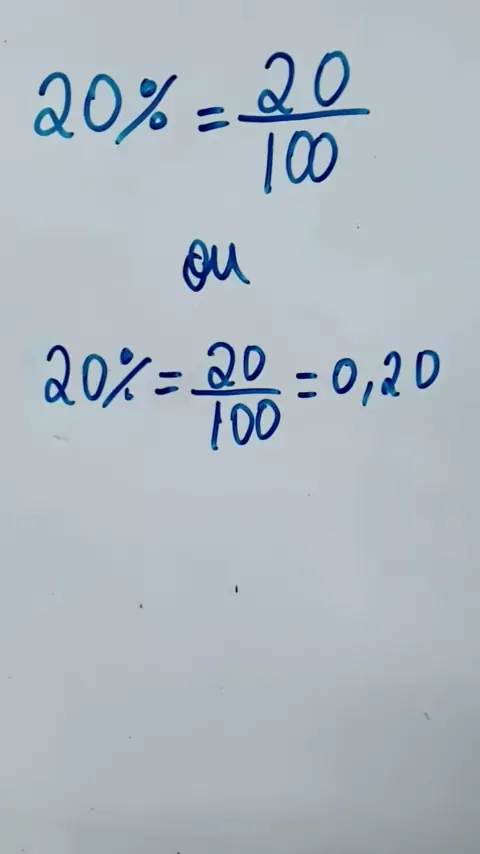 20% = 20/100
ou
20% = 20/100 = 0,20